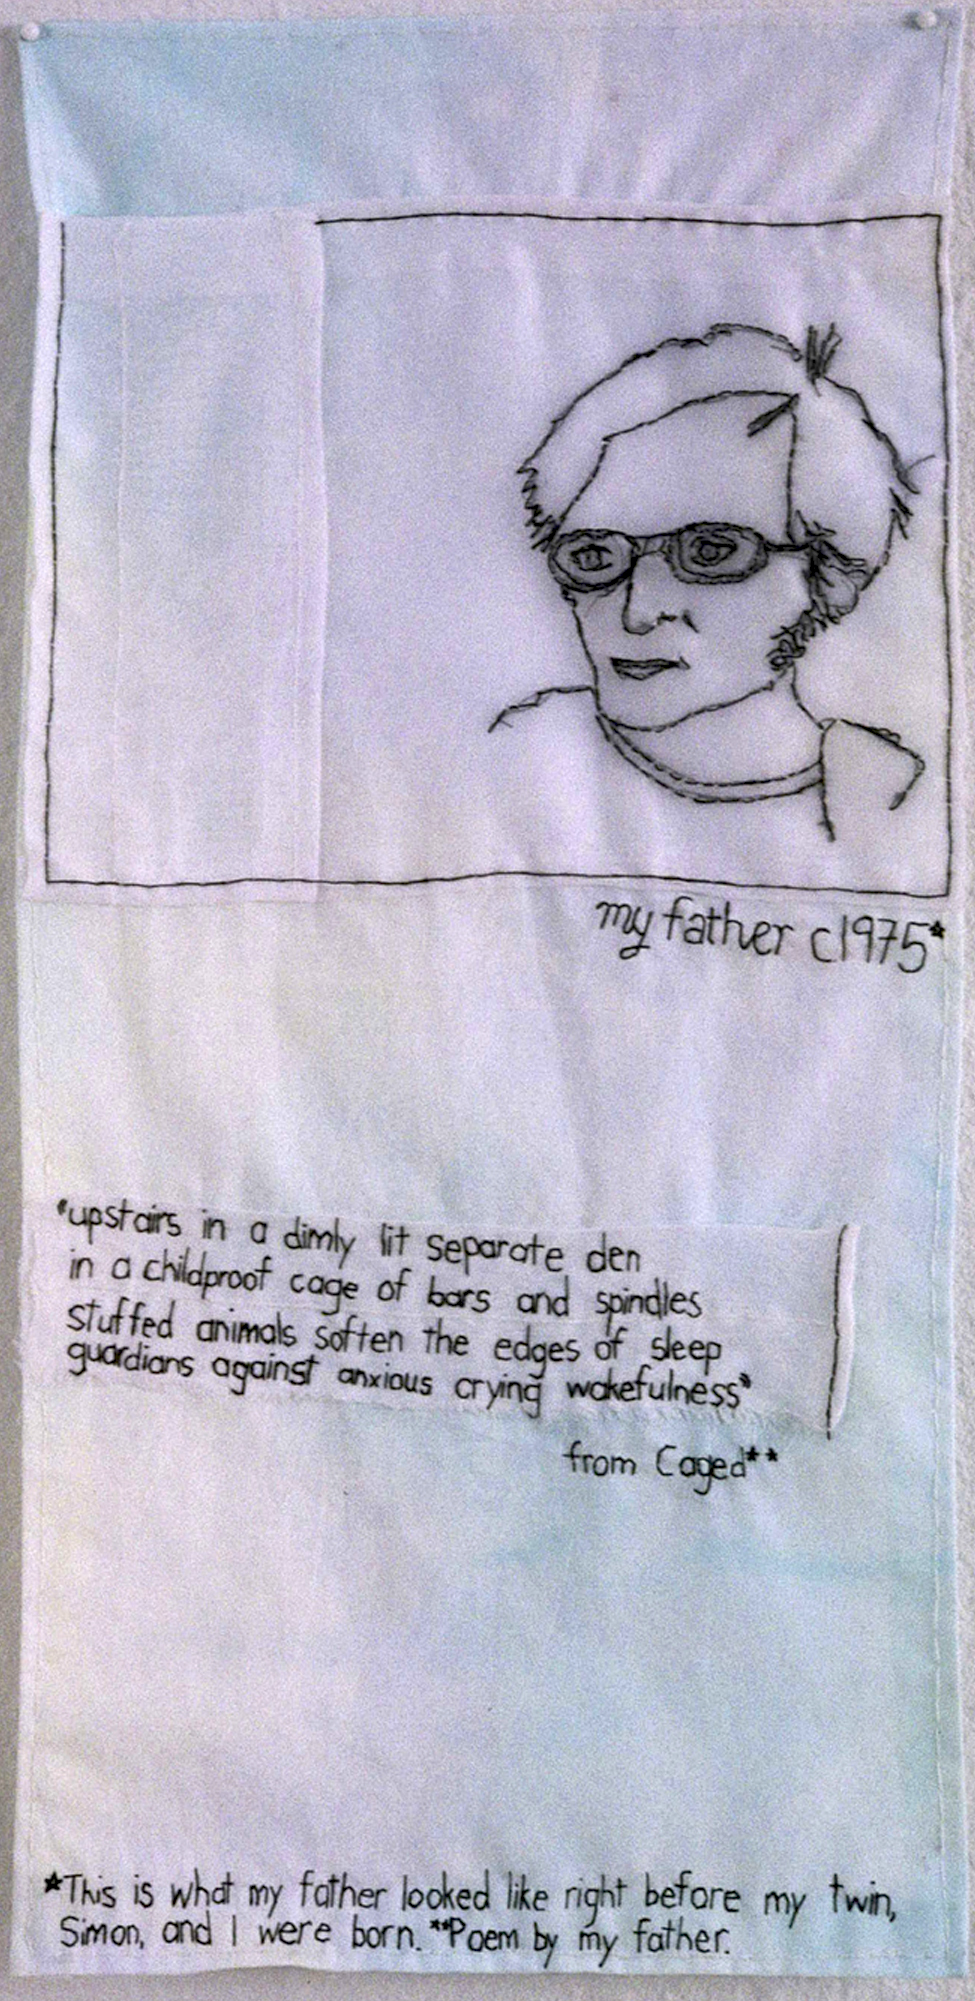 my father c1975*
"upstairs in a dimly lit separate den
in a childproof cage of bars and spindles
stuffed animals soften the edges of sleep
guardians against anxious crying wakefulness"
from Caged**
*This is what my father looked like right before my twin,
Simon, and I were born. **Poem by my father.